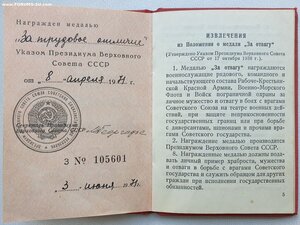 www.FORUMS-SU.com
Награжден медалью
„За трудовое отличие“
Указом Президиума Верховного
Совета СССР
от „ 8 “ апреля 1971 г.
З № 105601
„ 3 “ июня 1971 г.
ИЗВЛЕЧЕНИЯ
из Положения о медали „За отвагу“
(Утверждено Указом Президиума Верховного Совета
СССР от 17 октября 1938 г.)
1. Медалью „За отвагу“ награждаются
военнослужащие рядового, командного и
начальствующего состава Рабоче-Крестьян-
ской Красной Армии, Военно-Морского
Флота и Войск пограничной охраны за
личное мужество и отвагу в боях с врагами
Советского Союза на театре военных дей-
ствий, при защите неприкосновенности
государственных границ или при борьбе
с диверсантами, шпионами и прочими врага-
ми Советского государства.
2. Награждение медалью производится
Президиумом Верховного Совета СССР.
8. Награжденные медалью должны пока-
зывать личный пример храбрости, мужества
и отваги в борьбе с врагами Советского
государства и служить образцом для других
граждан при исполнении государственных
обязанностей.
5